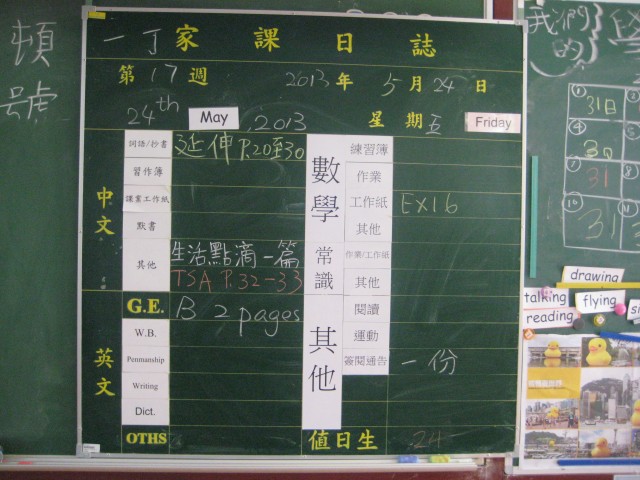 頓
號
一丁家課日誌
第17週 2013年 5月24日
24th May ,2013 星期五 Friday
中文
詞語/抄書 延伸 P.20至30
習作簿
課業工作紙
默書
其他 生活點滴一篇
TSA P.32-33
英文
G.E. B 2 pages
W.B.
Penmanship
Writing
Dict.
OTHS
數學
練習簿
作業
工作紙 EX16
其他
常識
作業/工作紙
其他
其他
閱讀
運動
簽閱通告 一份
值日生 24
我們的
學
31日
30
31
31
drawing
talking
flying
reading